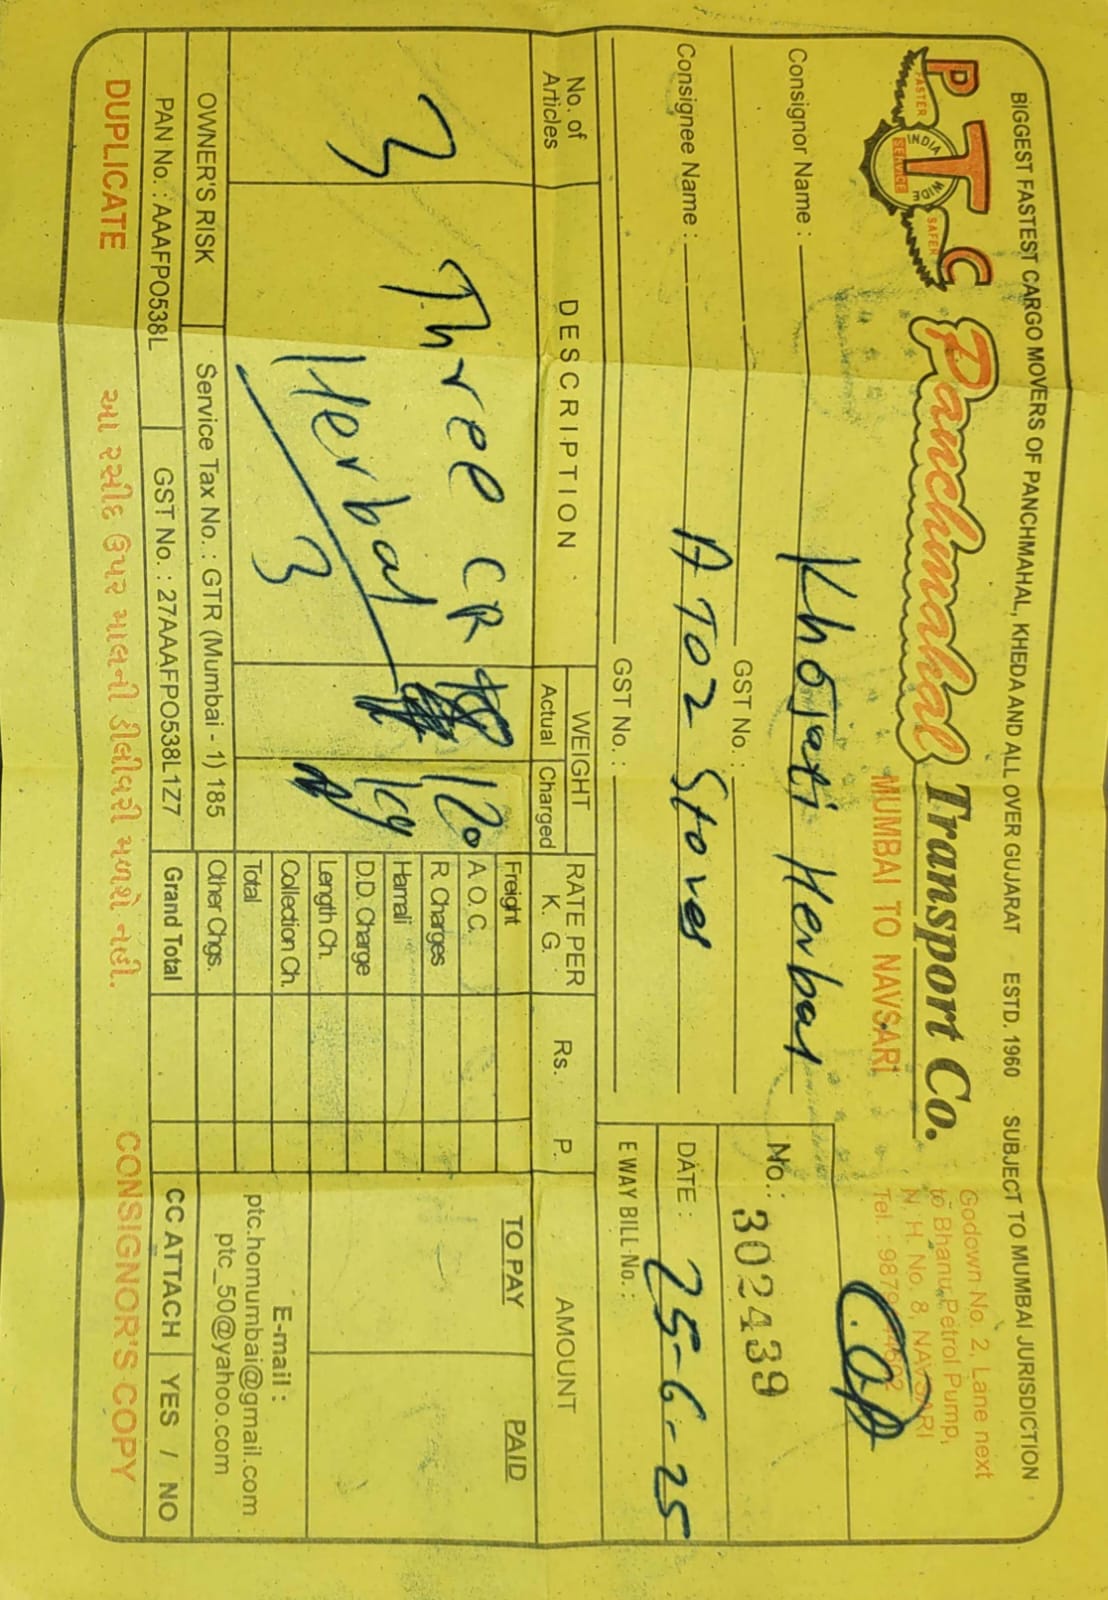 BIGGEST FASTEST CARGO MOVERS OF PANCHMAHAL, KHEDA AND ALL OVER GUJARAT ESTD. 1960 SUBJECT TO MUMBAI JURISDICTION
PTC
FASTER SAFER
INDIA WIDE
SERVICE
Panchmahal Transport Co.
MUMBAI TO NAVSARI
Godown No. 2, Lane next
to Bhanu Petrol Pump,
N. H. No. 8, NAVSARI
Tel. :
Consignor Name : Khojati Herbal
GST No. :
Consignee Name : A TO Z Stores
GST No. :
No. : 302439
DATE : 25-6-25
E WAY BILL No. :
No. of Articles
DESCRIPTION
WEIGHT
Actual Charged
RATE PER K. G.
Rs. P.
AMOUNT
3 Three CR 120
Herbal
3
Freight
A. O. C.
R. Charges
Hamali
D.D. Charge
Length Ch.
Collection Ch.
Total
Other Chgs.
Grand Total
TO PAY PAID
E-mail :
ptc.homumbai@gmail.com
ptc_50@yahoo.com
OWNER'S RISK Service Tax No. : GTR (Mumbai - 1) 185
PAN No. : AAAFPO538L GST No. : 27AAAFPO538L1Z7
CC ATTACH YES / NO
DUPLICATE આ રસીદ ઉપર માલની ડીલીવરી મળશે નહી. CONSIGNOR'S COPY